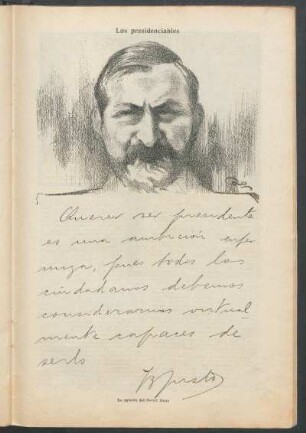 Los presidenciables
Querer ser presidente
es una ambición enfer
miza, pues todos los
ciudadanos debemos
considerarnos virtual
mente capaces de
serlo
JB Justo
La opinión del Doctor Justo